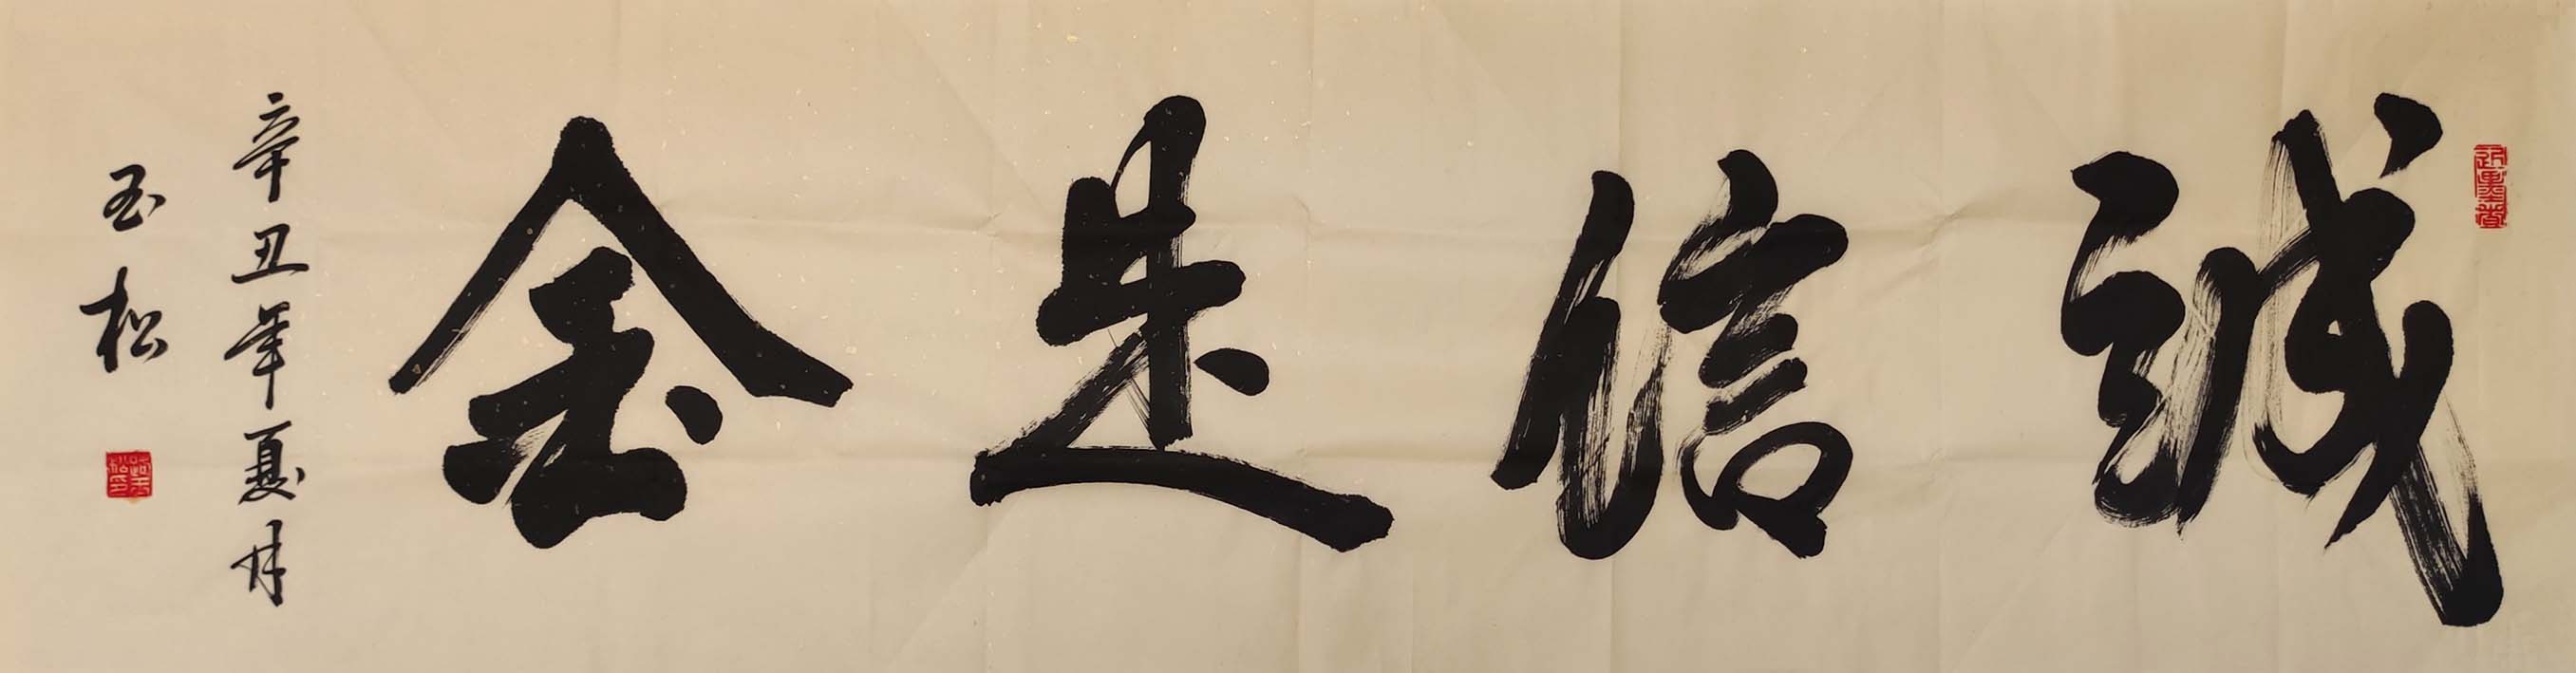 誠信是金
辛丑年夏月
玉松